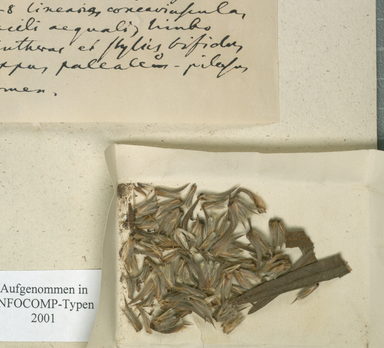 -8 lineares concaviuscula,
aequali, limbo
antheras et stylus bifidus
ppus paleaceo-pilosus
Aufgenommen in
NFOCOMP-Typen
2001